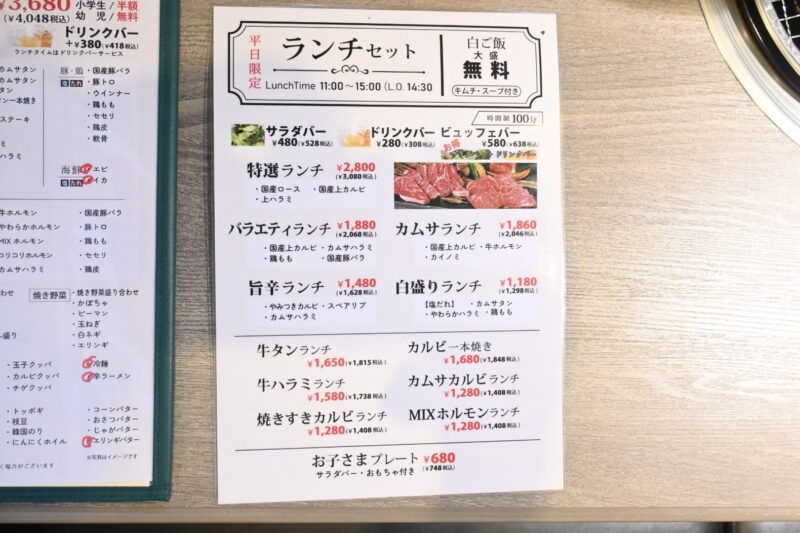 ¥3,680
(¥4,048税込)
小学生/半額
幼児/無料
ドリンクバー
+¥380(¥418税込)
ランチタイムはドリンクバーサービス
カムサタン
カムサタン
タン一本焼き
ステーキ
豚・鶏
塩 たれ
・国産豚バラ
・豚トロ
・ウインナー
・鶏もも
・セセリ
・鶏皮
・軟骨
海鮮
塩 たれ
エビ
イカ
牛ホルモン
やわらかホルモン
MIXホルモン
コリコリホルモン
カムサハラミ
・国産豚バラ
・豚トロ
・鶏もも
・セセリ
・鶏皮
焼き野菜
・焼き野菜盛り合わせ
・かぼちゃ
・ピーマン
・玉ねぎ
・白ネギ
・エリンギ
・玉子クッパ
・カルビクッパ
・チゲクッパ
冷麺
辛ラーメン
・トッポギ
・枝豆
・韓国のり
・にんにくホイル
・コーンバター
・おさつバター
・じゃがバター
エリンギバター
※写真はイメージです
場合がございます
平日限定
ランチセット
LunchTime 11:00～15:00 (L.O. 14:30
白ご飯
大盛
無料
キムチ・スープ付き
時間制100分
サラダバー
¥480(¥528税込)
ドリンクバー
¥280(¥308税込)
ビュッフェバー
¥580(¥638税込)
お得
サラダバー+ドリンクバー
特選ランチ
¥2,800
(¥3,080税込)
・国産ロース ・国産上カルビ
・上ハラミ
バラエティランチ
¥1,880
(¥2,068税込)
・国産上カルビ ・カムサハラミ
・鶏もも ・国産豚バラ
カムサランチ
¥1,860
(¥2,046税込)
・国産上カルビ ・牛ホルモン
・カイノミ
旨辛ランチ
¥1,480
(¥1,628税込)
・やみつきカルビ ・スペアリブ
・カムサハラミ
白盛りランチ
¥1,180
(¥1,298税込)
【塩だれ】 ・カムサタン
・やわらかハラミ ・鶏もも
牛タンランチ
¥1,650(¥1,815税込)
カルビ一本焼き
¥1,680(¥1,848税込)
牛ハラミランチ
¥1,580(¥1,738税込)
カムサカルビランチ
¥1,280(¥1,408税込)
焼きすきカルビランチ
¥1,280(¥1,408税込)
MIXホルモンランチ
¥1,280(¥1,408税込)
お子さまプレート ¥680
(¥748税込)
サラダバー・おもちゃ付き